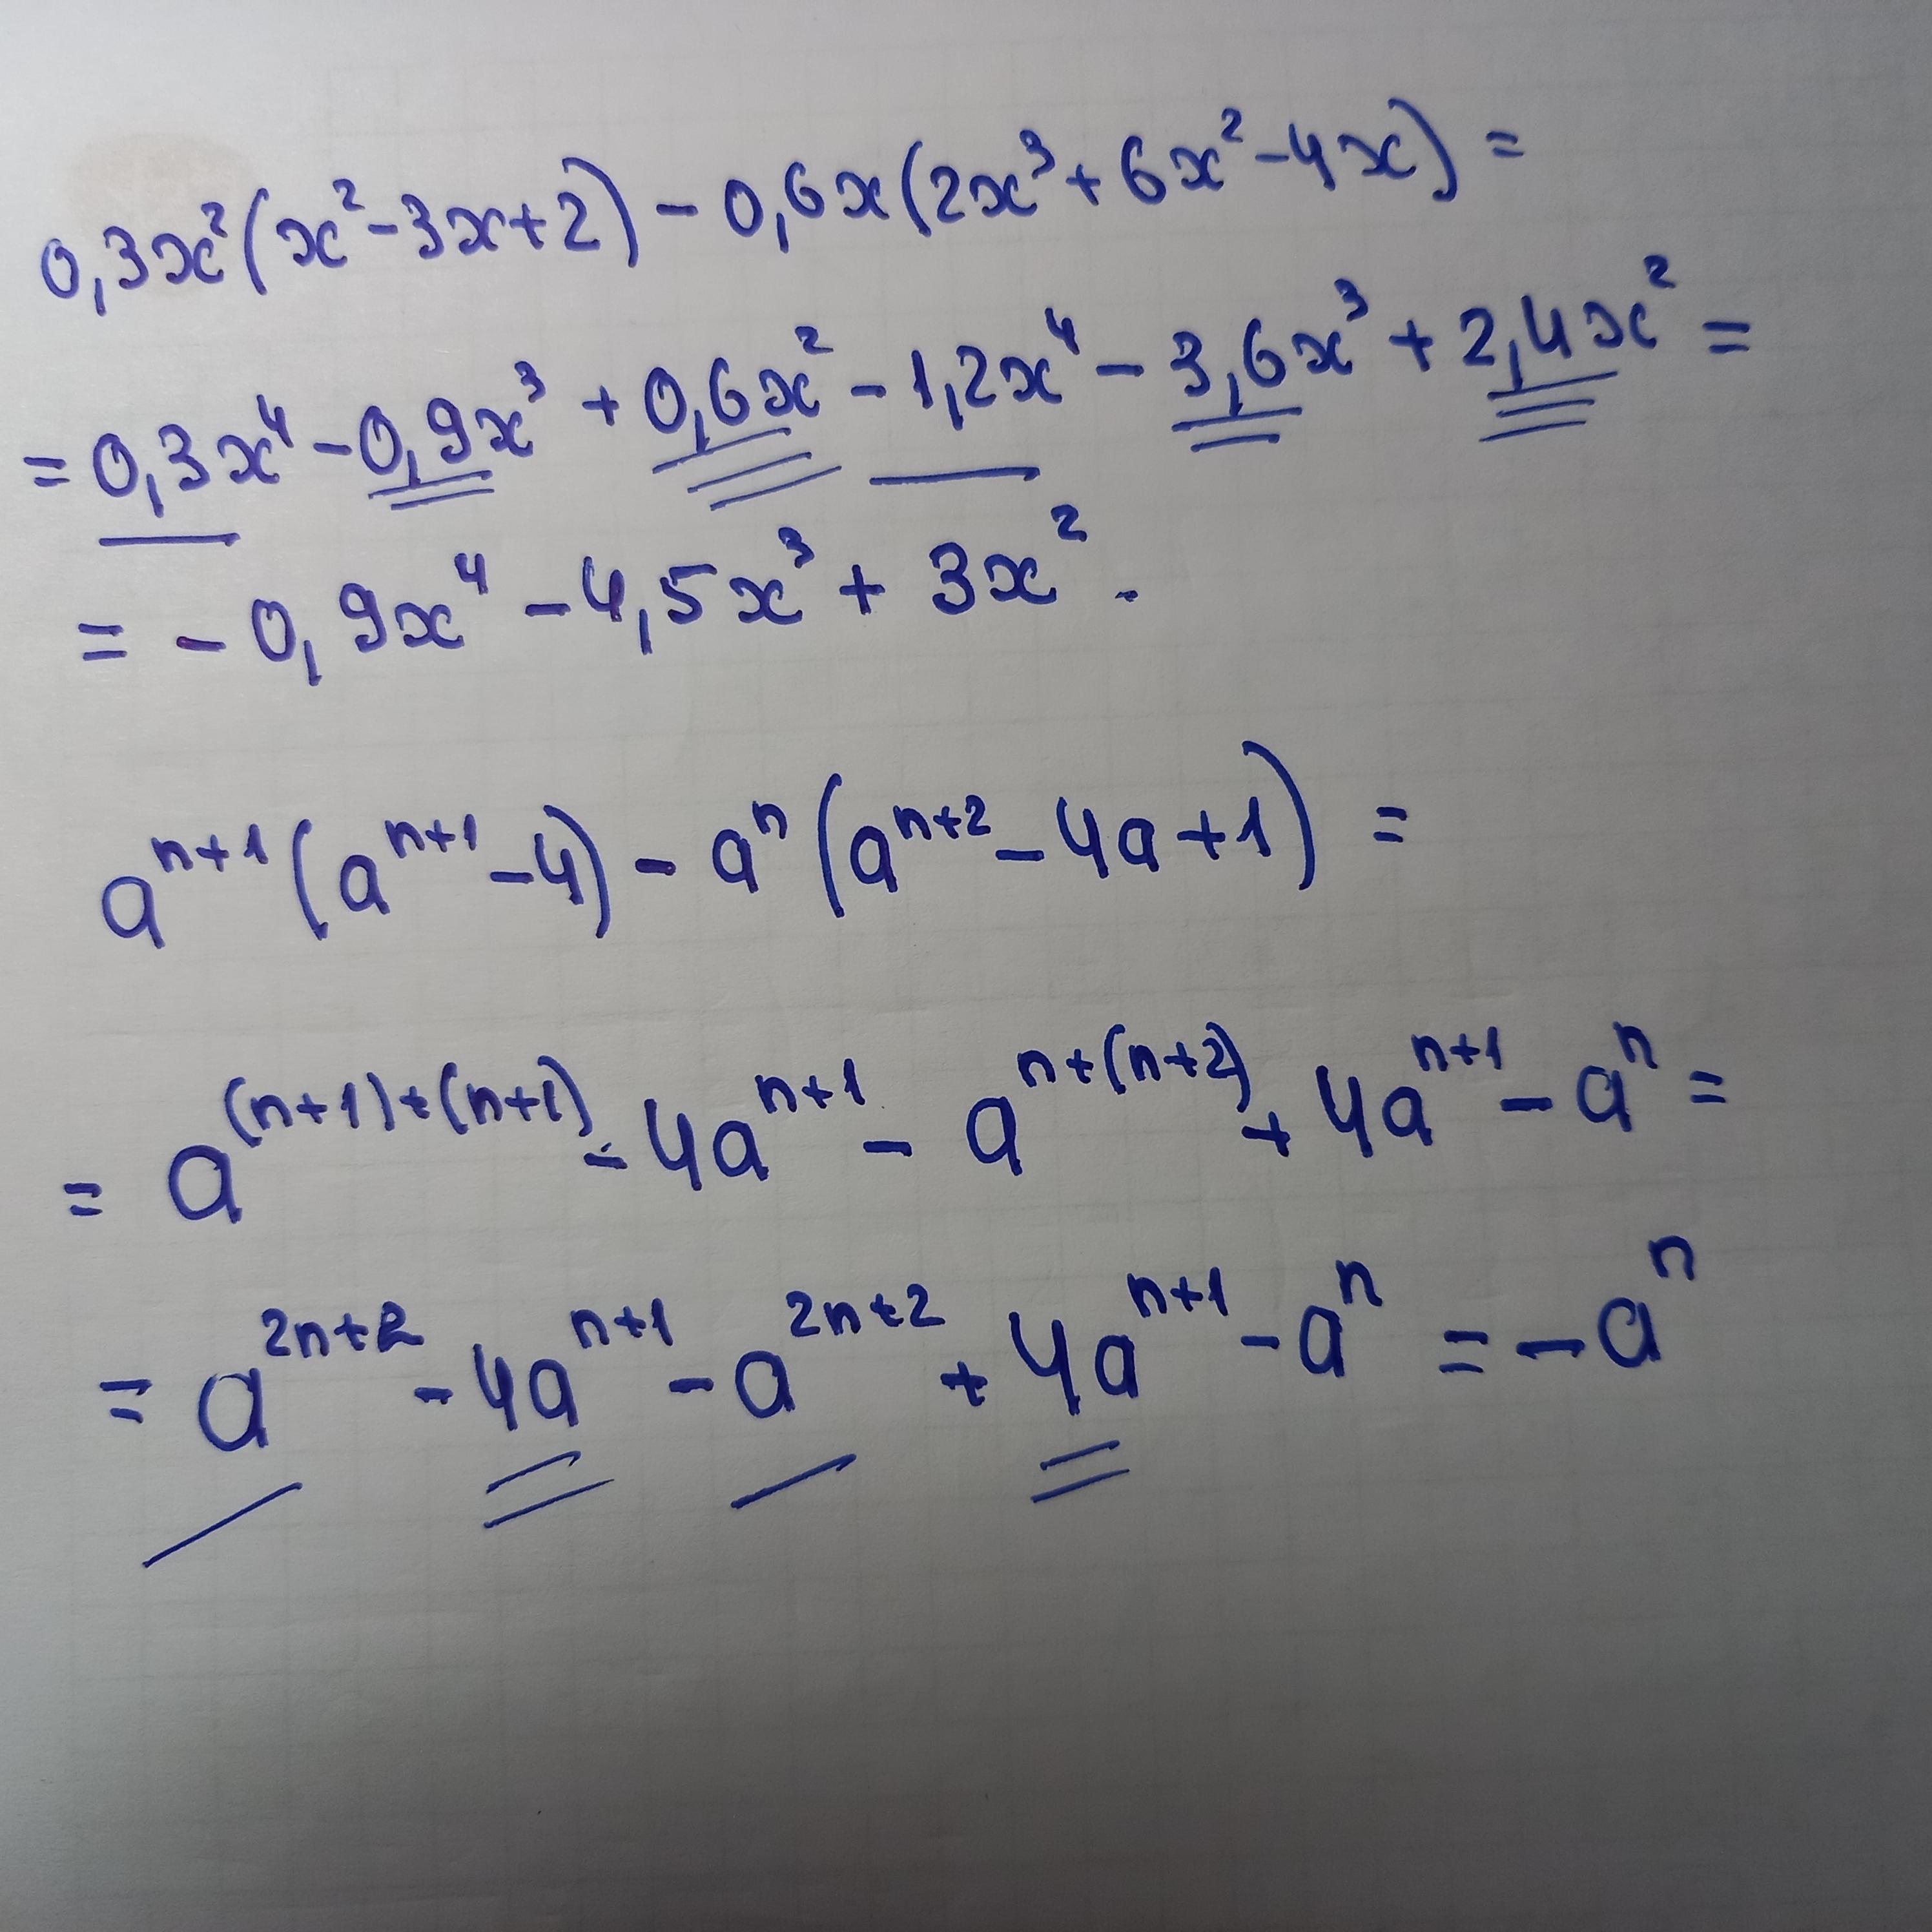 0,3x²(x²-3x+2) - 0,6x(2x³+6x²-4x) =
= 0,3x⁴ - 0,9x³ + 0,6x² - 1,2x⁴ - 3,6x³ + 2,4x² =
= - 0,9x⁴ - 4,5x³ + 3x².
aⁿ⁺¹(aⁿ⁺¹ - 4) - aⁿ(aⁿ⁺² - 4a + 1) =
= a⁽ⁿ⁺¹⁾⁺⁽ⁿ⁺¹⁾ - 4aⁿ⁺¹ - aⁿ⁺⁽ⁿ⁺²⁾ + 4aⁿ⁺¹ - aⁿ =
= a²ⁿ⁺² - 4aⁿ⁺¹ - a²ⁿ⁺² + 4aⁿ⁺¹ - aⁿ = - aⁿ